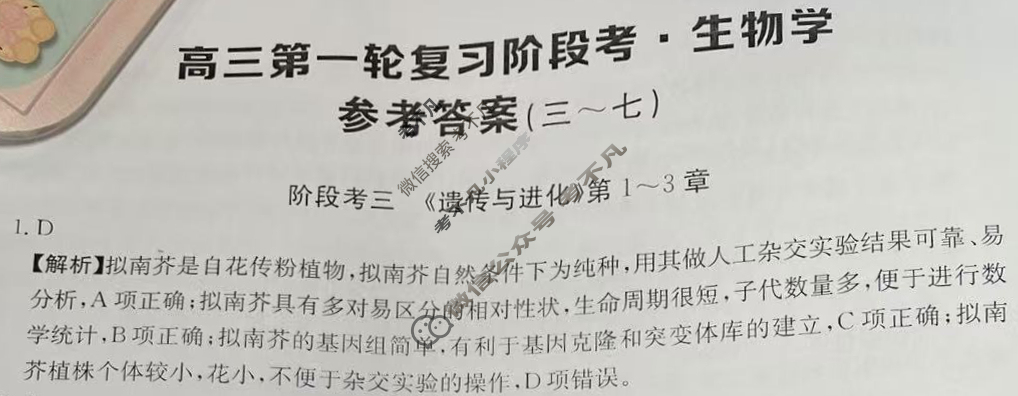 高三第一轮复习阶段考·生物学
参考答案(三～七)
阶段考三 《遗传与进化》第1～3章
1. D
【解析】拟南芥是自花传粉植物,拟南芥自然条件下为纯种,用其做人工杂交实验结果可靠、易
分析,A项正确;拟南芥具有多对易区分的相对性状,生命周期很短,子代数量多,便于进行数
学统计,B项正确;拟南芥的基因组简单,有利于基因克隆和突变体库的建立,C项正确;拟南
芥植株个体较小,花小,不便于杂交实验的操作,D项错误。
微信搜索 考不凡
考不凡小程序
微信公众号 考不凡